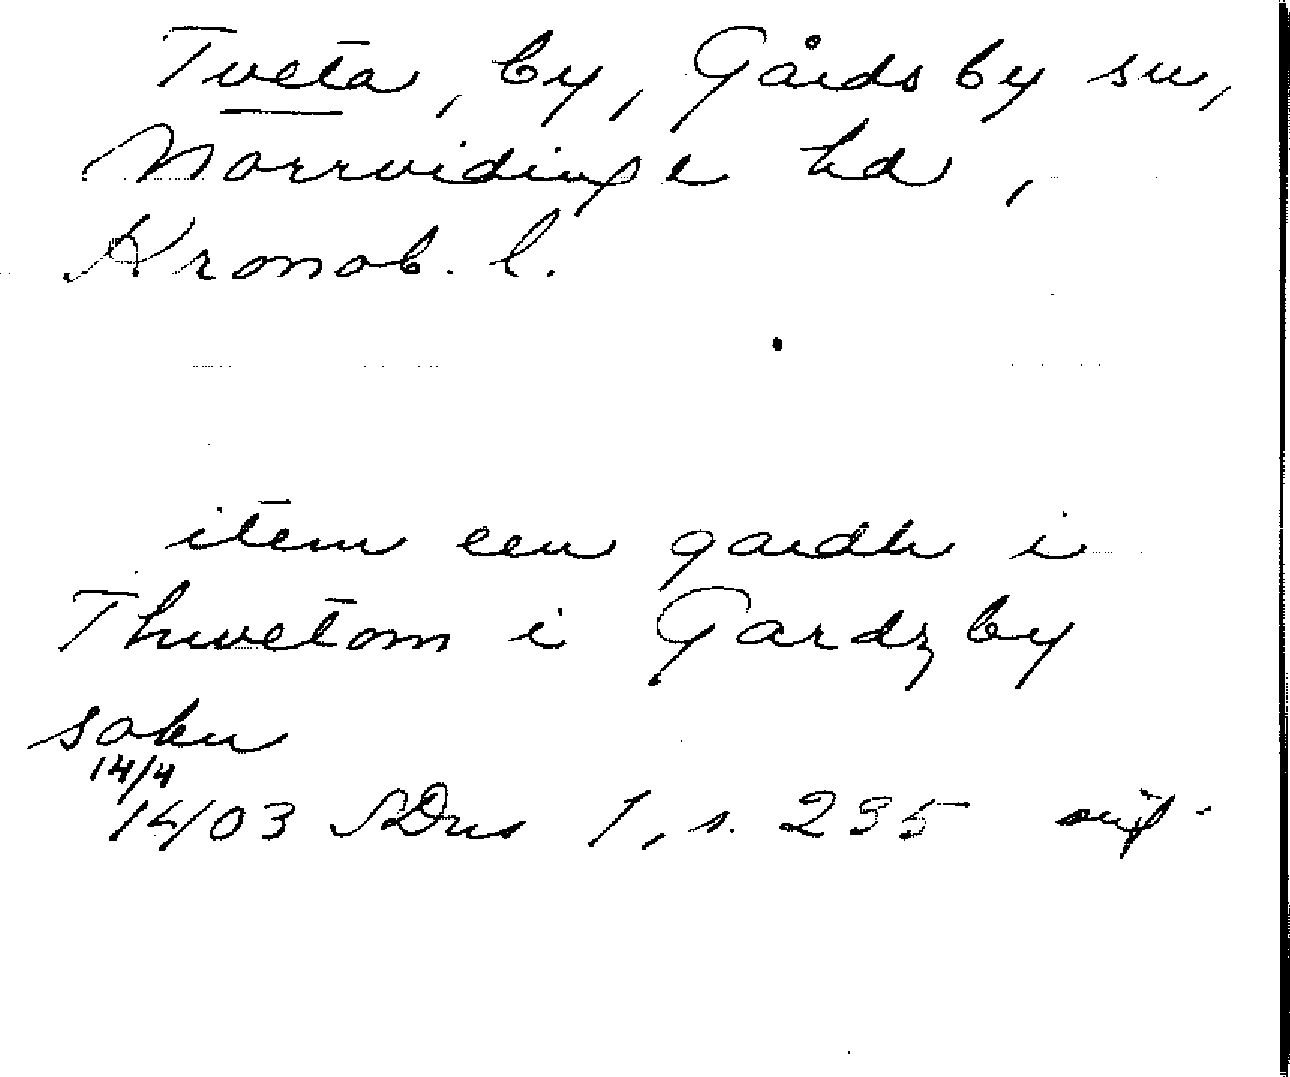 Tveta, by, Gårdsby sn,
Norrvidinge hd,
Kronob. l.
item een gardh i
Thwetom i Gardzby
sokn
14/4
1403 SDns 1, s. 235